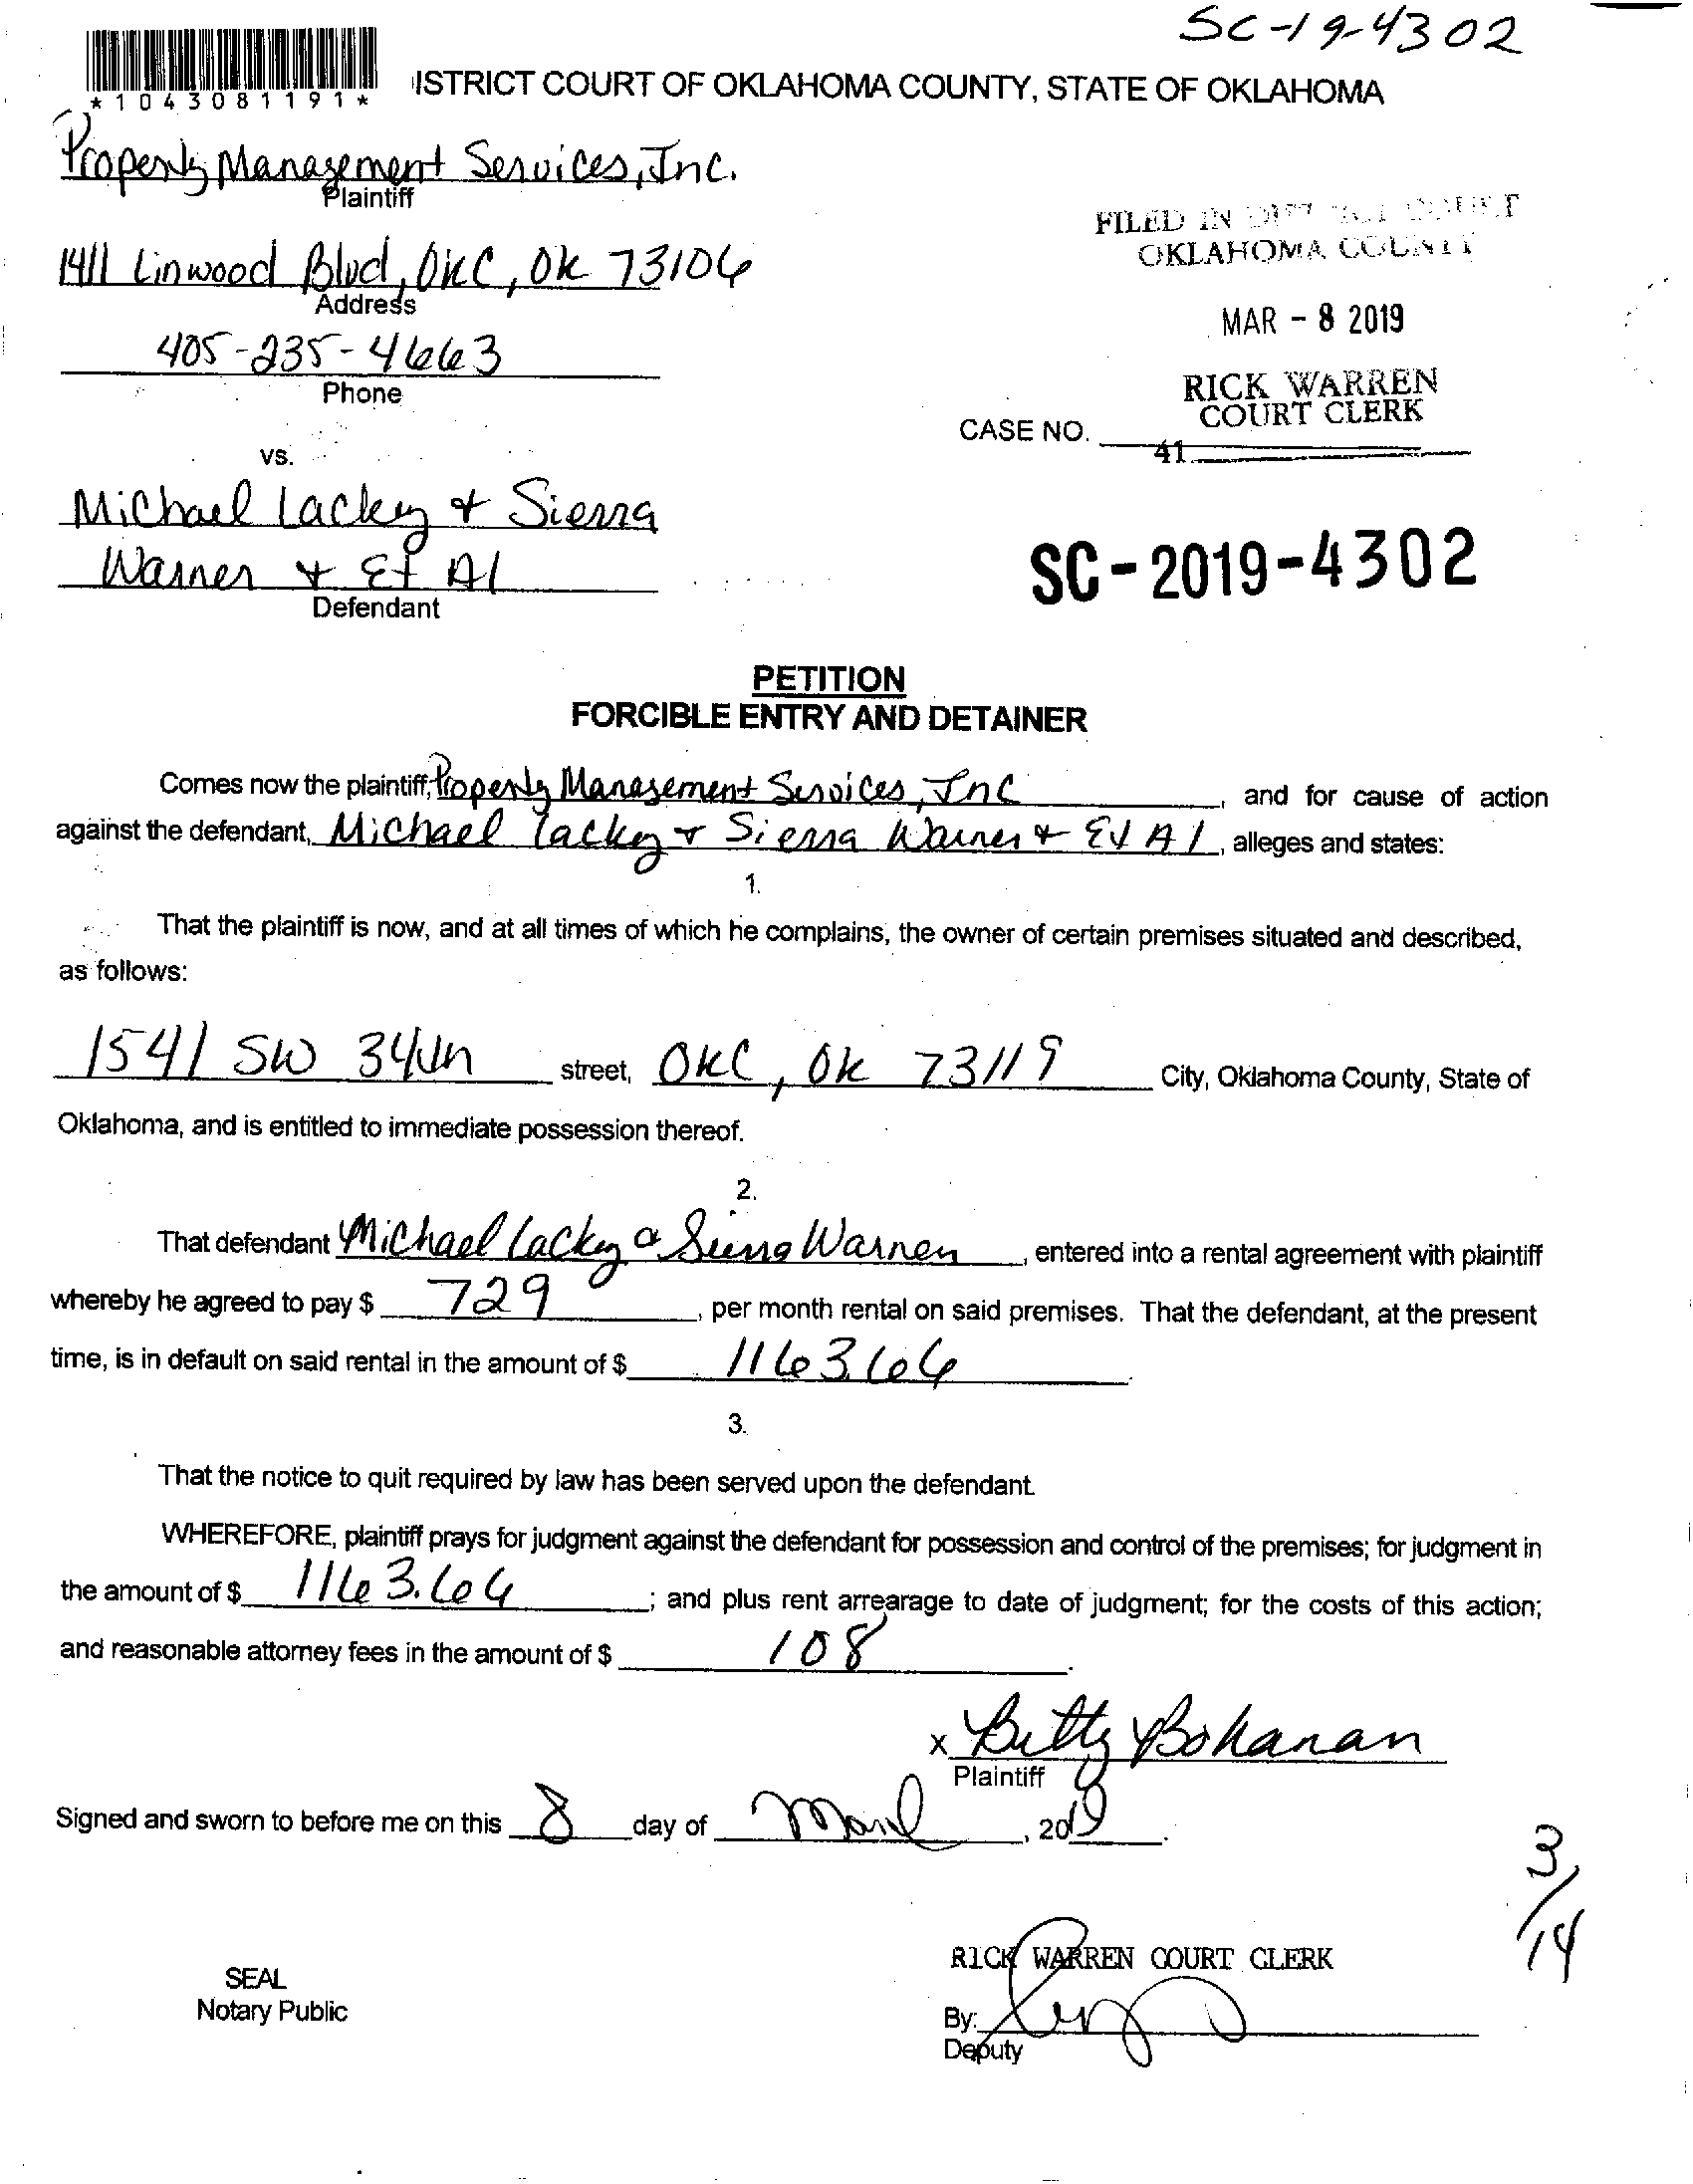 SC-19-4302
*1043081191*
ISTRICT COURT OF OKLAHOMA COUNTY, STATE OF OKLAHOMA
Property Management Services, Inc.
Plaintiff
1411 Linwood Blvd, OKC, OK 73106
Address
405-235-4663
Phone
FILED IN DISTRICT COURT
OKLAHOMA COUNTY
MAR - 8 2019
RICK WARREN
COURT CLERK
CASE NO.
41
vs.
Michael Lackey + Sierra
Warner + Et Al
Defendant
SC-2019-4302
PETITION
FORCIBLE ENTRY AND DETAINER
Comes now the plaintiff, Property Management Services, Inc, and for cause of action
against the defendant, Michael Lackey + Sierra Warner + Et Al, alleges and states:
1.
That the plaintiff is now, and at all times of which he complains, the owner of certain premises situated and described,
as follows:
1541 SW 34th street, OKC, OK 73119 City, Oklahoma County, State of
Oklahoma, and is entitled to immediate possession thereof.
2.
That defendant Michael Lackey & Sierra Warner, entered into a rental agreement with plaintiff
whereby he agreed to pay $ 729, per month rental on said premises. That the defendant, at the present
time, is in default on said rental in the amount of $ 1163.64.
3.
That the notice to quit required by law has been served upon the defendant.
WHEREFORE, plaintiff prays for judgment against the defendant for possession and control of the premises; for judgment in
the amount of $ 1163.64; and plus rent arrearage to date of judgment; for the costs of this action;
and reasonable attorney fees in the amount of $ 108.
x Betty Bohanan
Plaintiff
Signed and sworn to before me on this 8 day of March, 2019.
3/14
RICK WARREN COURT CLERK
SEAL
Notary Public
By:
Deputy